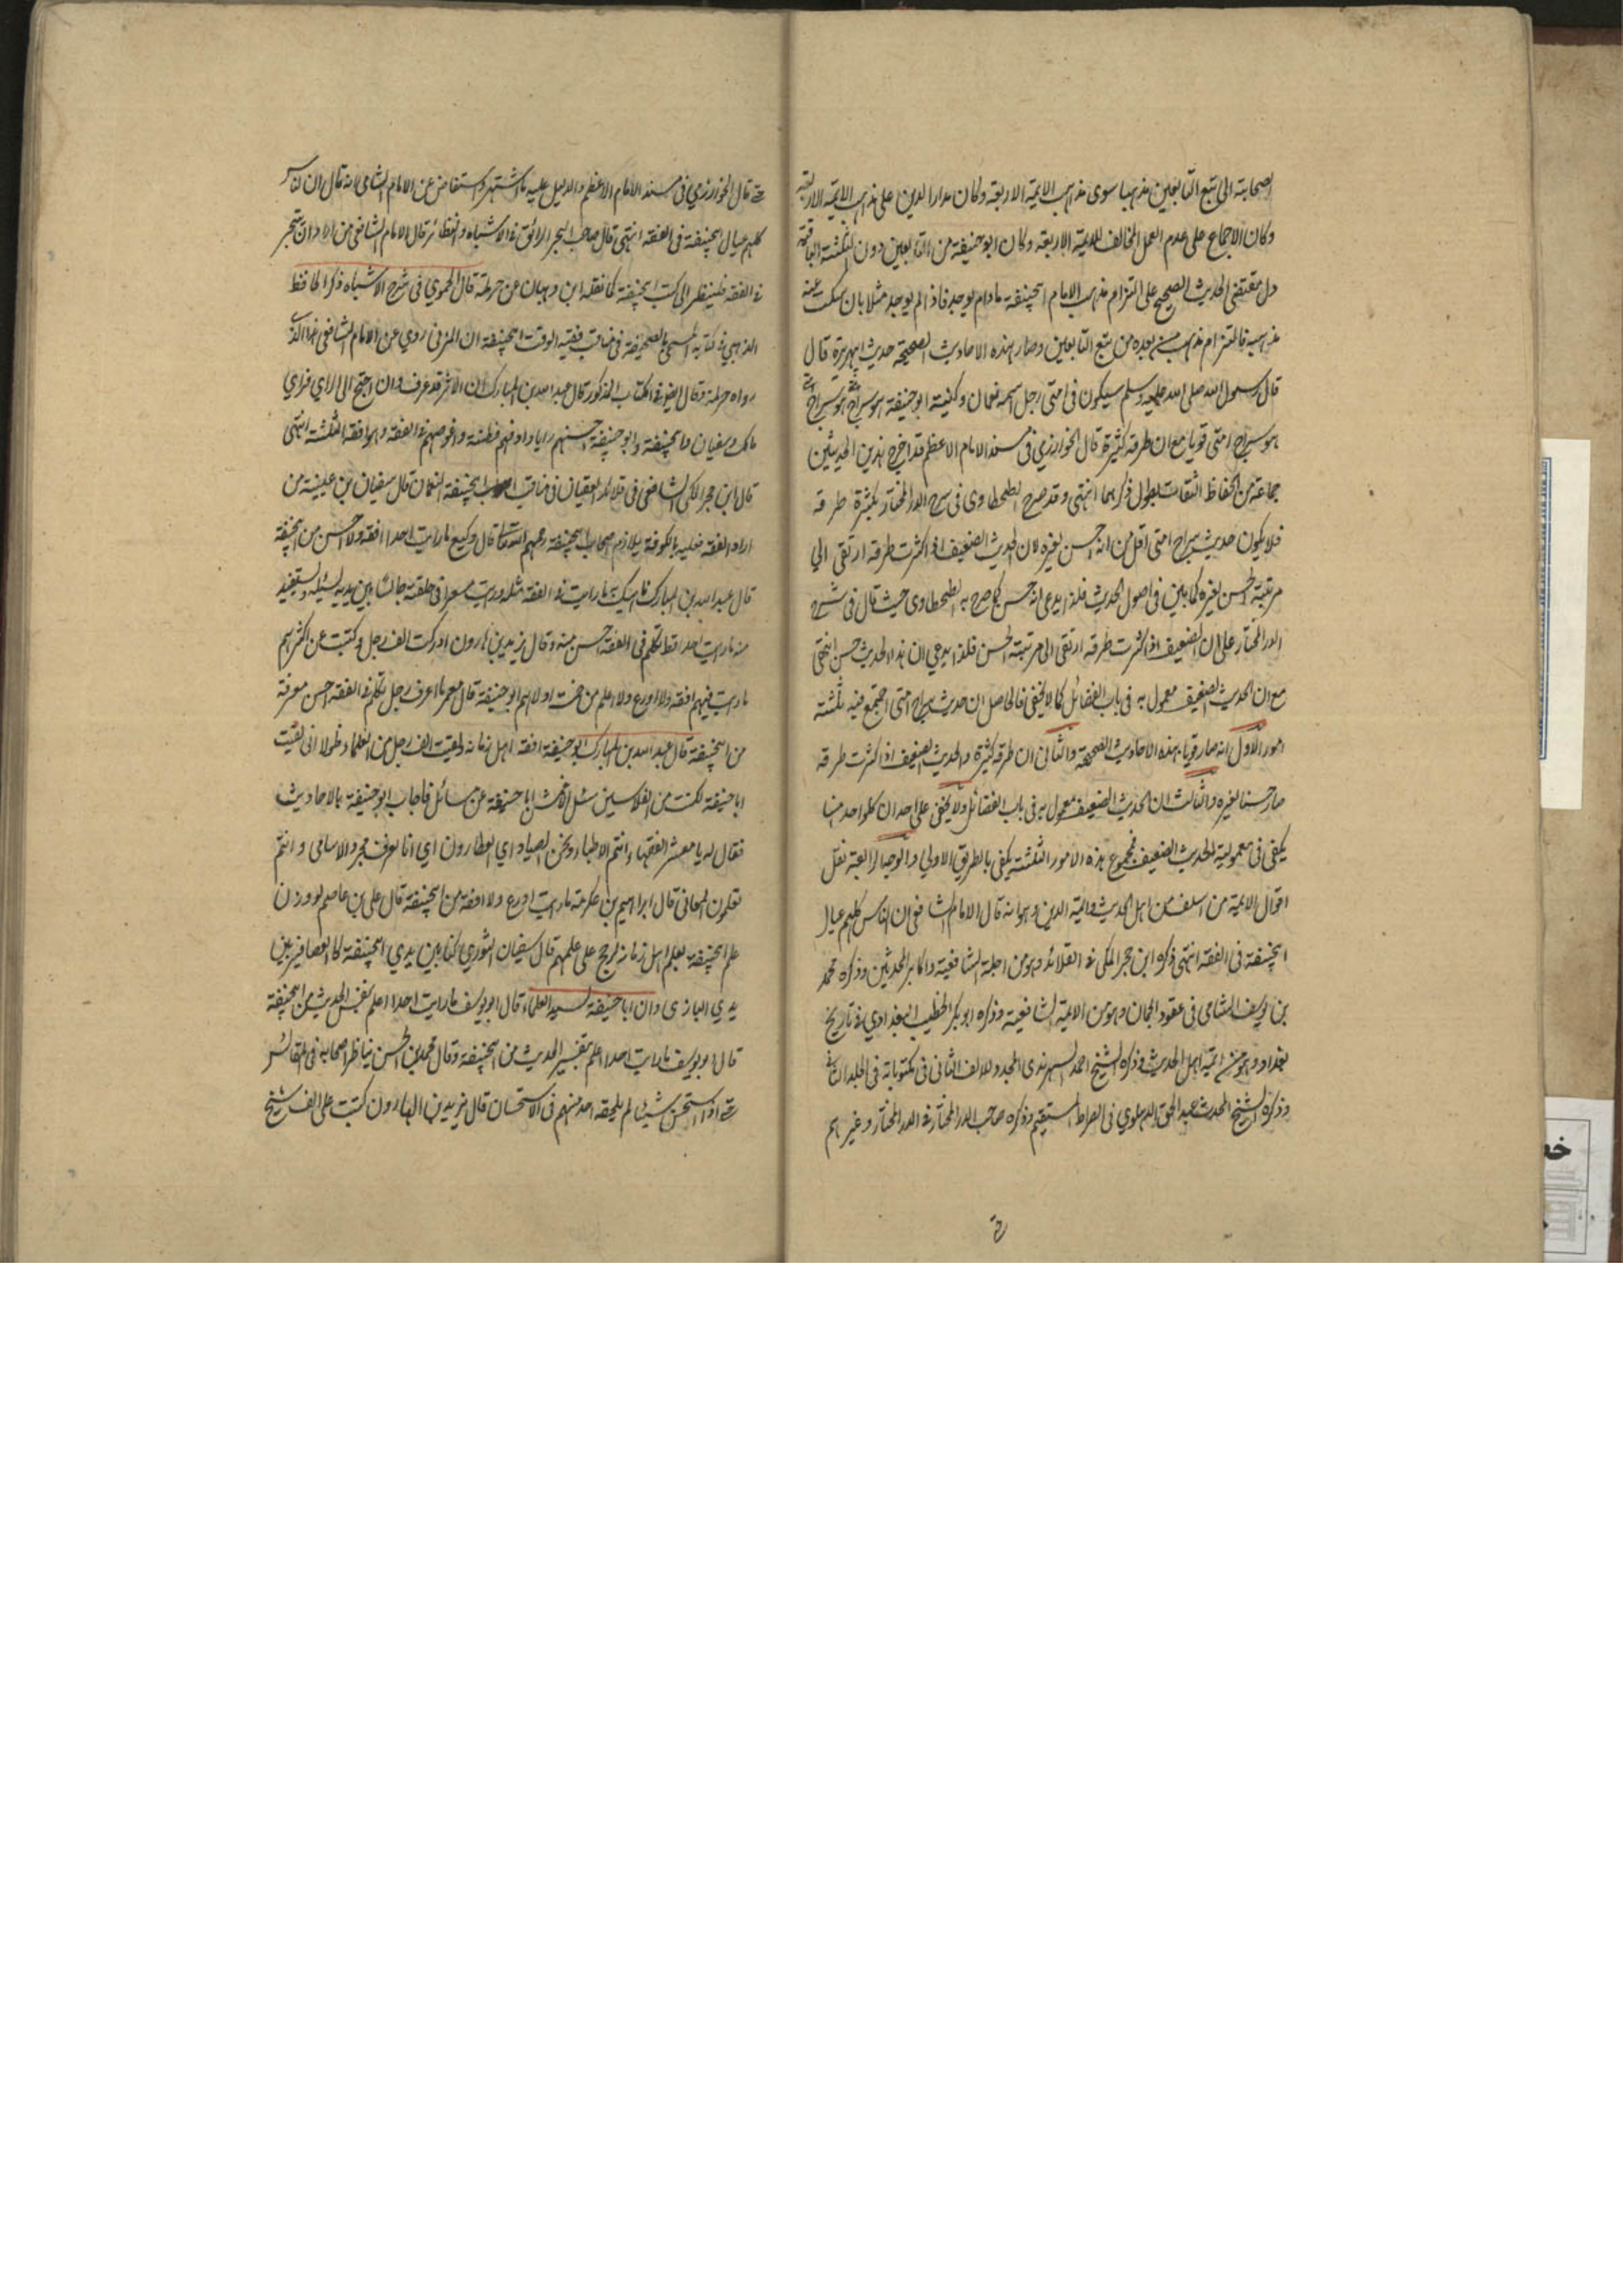 الصحابة الى تبع التابعين مذهبا سوى مذاهب الايمة الاربعة وكان مدار الدين على مذاهب الايمة الاربعة
وكان الاجماع على عدم العمل المخالف للايمة الاربعة وكان ابو حنيفة من التابعين دون الثلثة الباقية
دل مقتضى الحديث الصحيح على التزام مذهب الامام ابيحنيفة مادام يوجد فاذا لم يوجد مثلا بان سكت عنه
مذهبه فالتزام مذهب من بعده من تبع التابعين وصار بهذه الاحاديث الصحيحة حديث ابيهريرة قال
قال رسول الله صلى الله عليه وسلم سيكون فى امتى رجل اسمه نعمان وكنيته ابو حنيفة هو سراج امتى هو سراج امتى
هو سراج امتى قويا مع ان طرقه كثيرة قال الخوارزمي فى مسند الامام الاعظم قد اخرج هذين الحديثين
جماعة من الحفاظ الثقات يطول ذكرهما انتهى وقد صرح الطحطاوى فى شرح الدر المختار بكثرة طرقه
فلا يكون حديث سراج امتى اقل من انه حسن لغيره لان الحديث الضعيف اذا كثرت طرقه ارتقى الى
مرتبة الحسن لغيره كما بين فى اصول الحديث فلذا يدعى انه حسن كما صرح به الطحطاوى حيث قال فى شرح
الدر المختار على ان الضعيف اذا كثرت طرقه ارتقى الى مرتبة الحسن فلذا يدعى ان هذا الحديث حسن انتهى
مع ان الحديث الضعيف معمول به فى باب الفضائل كما لا يخفى فالحاصل ان حديث سراج امتى اجتمع فيه ثلثة
امور الاول انه صار قويا بهذه الاحاديث الصحيحة والثانى ان طرقه كثيرة والحديث الضعيف اذا كثرت طرقه
صار حسنا لغيره والثالث ان الحديث الضعيف معمول به فى باب الفضائل ولا يخفى على احد ان كلواحد منها
يكفى فى معمولية الحديث الضعيف فمجموع هذه الامور الثلثة يكفى بالطريق الاولي والوجه الرابعة نقل
اقوال الايمة من السلف من اهل الحديث وائمة الدين وهو انه قال الامام الشافعى ان الناس كلهم عيال
ابيحنيفة فى الفقه انتهى ذكره ابن حجر المكى فى القلائد وهو من اجلة الشافعية واكابر المحدثين وذكره محمد
بن يوسف الشامى فى عقود الجمان وهو من الايمة الشافعية وذكره ابو بكر الخطيب البغدادي فى تاريخ
بغداد وهو من ائمة اهل الحديث وذكره الشيخ احمد السهرندى المجدد للالف الثانى فى مكتوباته فى الجلد الثانى
وذكره الشيخ المحدث عبد الحق الدهلوي فى الصراط المستقيم وذكره صاحب الدر المختار فى الدر المختار وغيرهم
قال الخوارزمي فى مسند الامام الاعظم والدليل عليه ما اشتهر واستفاض عن الامام الشافعى انه قال ان الناس
كلهم عيال ابيحنيفة فى الفقه انتهى قال صاحب البحر الرائق فى الاشباه والنظائر قال الامام الشافعى من اراد ان يتبحر
فى الفقه فلينظر الى كتب ابيحنيفة كما نقله ابن وهبان عن حرملة قال الحموي فى شرح الاشباه ذكر الحافظ
الذهبي فى كتابه المسمى بالصحيفة فى مناقب فقيه الوقت ابيحنيفة ان المزنى روي عن الامام الشافعى هذا الذي
رواه حرملة وقال ايضا فى الكتاب المذكور قال عبد الله بن المبارك ان الاثر قد عرف وان احتج الى الراي فراي
مالك وسفيان وابيحنيفة وابو حنيفة احسنهم رايا وادقهم فطنة واغوصهم فى الفقه وهو افقه الثلثة انتهى
قال ابن حجر المكى الشافعى فى قلائد العقيان فى مناقب ابيحنيفة النعمان قال سفيان بن عيينة من
اراد الفقه فعليه بالكوفة يلازم اصحاب ابيحنيفة رحمهم الله تعالى قال وكيع ما رايت احدا افقه ولا احسن من ابيحنيفة
قال عبد الله بن المبارك ما رايت فى الفقه مثله ورايت مسعرا فى حلقته جالسا بين يديه يسئله ويستفيد
منه ما رايت احدا قط تكلم فى الفقه احسن منه وقال يزيد بن هارون ادركت الف رجل وكتبت عن اكثرهم
ما رايت فيهم افقه ولا اورع ولا اعلم من خمسة اولهم ابو حنيفة قال معمر ما اعرف رجل يتكلم فى الفقه احسن معرفة
من ابيحنيفة قال عبد الله بن المبارك ابو حنيفة افقه اهل زمانه ولقيت الف رجل من العلماء ولولا انى لقيت
ابا حنيفة لكنت من الفلاسين سئل الاعمش ابا حنيفة عن مسائل فاجاب ابو حنيفة بالاحاديث
فقال له يا معشر الفقهاء انتم الاطباء ونحن الصيادلة اي العطارون اي انا نعرف مجرد الاسامى وانتم
تعلمون المعانى قال ابراهيم بن عكرمة ما رايت اورع ولا افقه من ابيحنيفة قال على بن عاصم لو وزن
علم ابيحنيفة بعلم اهل زمانه لرجح على علمهم قال سفيان الثوري كنا بين يدي ابيحنيفة كالعصافير بين
يدي البازى وان ابا حنيفة لسيد العلماء قال ابو يوسف ما رايت احدا اعلم بنفس الحديث من ابيحنيفة
قال ابو يوسف ما رايت احدا اعلم بتفسير الحديث من ابيحنيفة وقال محمد بن الحسن يناظر اصحابه فى المقائس
حتى اذا استحسن شيئا لم يلحقه احد منهم فى الاستحسان قال يزيد بن الهارون كتبت على الف شيخ